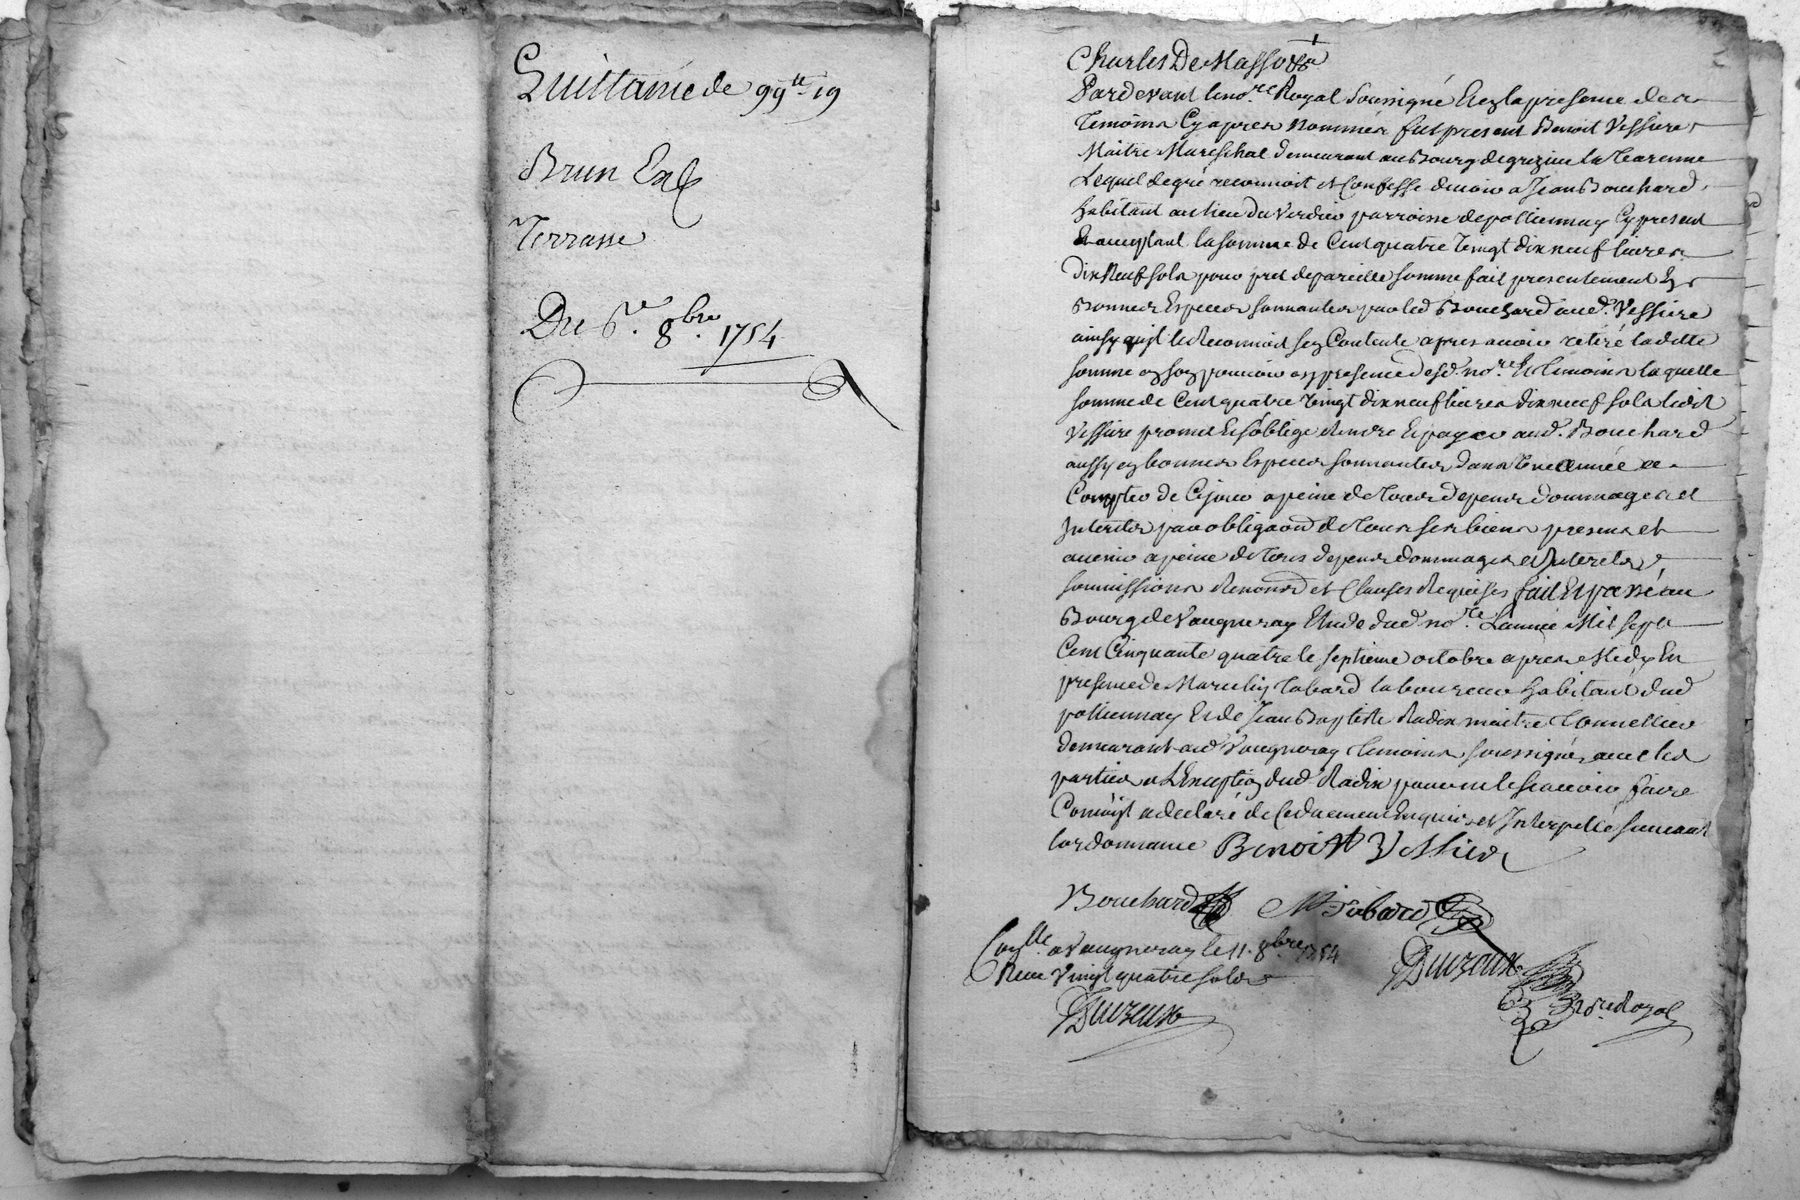 Quittance de 99tt 19
Brun Ent
Terrasse
Du 6e. 8bre. 1754
Charles De Masso
Pardevant le no.re Royal Soussigné Et en la presence des
temoins Cy apres Nommés fut present Benoit Vessiere
Maitre Mareschal demeurant au Bourg de grezieu la Varenne
Lequel de gré reconnoit et Confesse devoir a Jean Bouchard
habitant au lieu du Verdier parroisse de pollionnay Cy present
Et acceptant la somme de Cent quatre Vingt dix neuf livres
Dix Neuf sols pour pret de pareille somme fait presentement En
Bonnes Especes sonnantes par led Bouchard aud. Vessiere
ainsy quil le Reconnoit sen Contente apres avoir retiré laditte
somme en son pouvoir en presence desd. no.re Et temoins laquelle
somme de Cent quatre Vingt dix neuf livres dix neuf sols ledit
Vessiere promet Et s'oblige Rendre Et payer aud. Bouchard
aussy en bonnes Especes sonnantes dans Une année a
Compter de Ce jour a peine de tous depens dommages et
Interets par obligaon de tous ses biens presents et
avenir a peine de tous depens dommages et Interets
soumissions Renonon et Clauses Requises fait Et passé au
Bourg de Vaugneray Etude dud no.re L'année Mil sept
Cent Cinquante quatre le septieme octobre apres Midy En
presence de Marcelin Tabard laboureur habitant dud
pollionnay Et de Jean Baptiste Radix maitre tonnellier
demeurant aud Vaugneray temoins soussignés avec les
parties a L'Exception dud Radix pour ne le scavoir faire
Comme il a declaré de Ce duement Enquis et Interpellé suivant
lordonnance Benoist Vessier
Bouchard M Tabard
Conlle a Vaugneray le 11. 8bre 1754
Receu Vingt quatre sols
Duvzeux
Duvzeux
No.re Royal